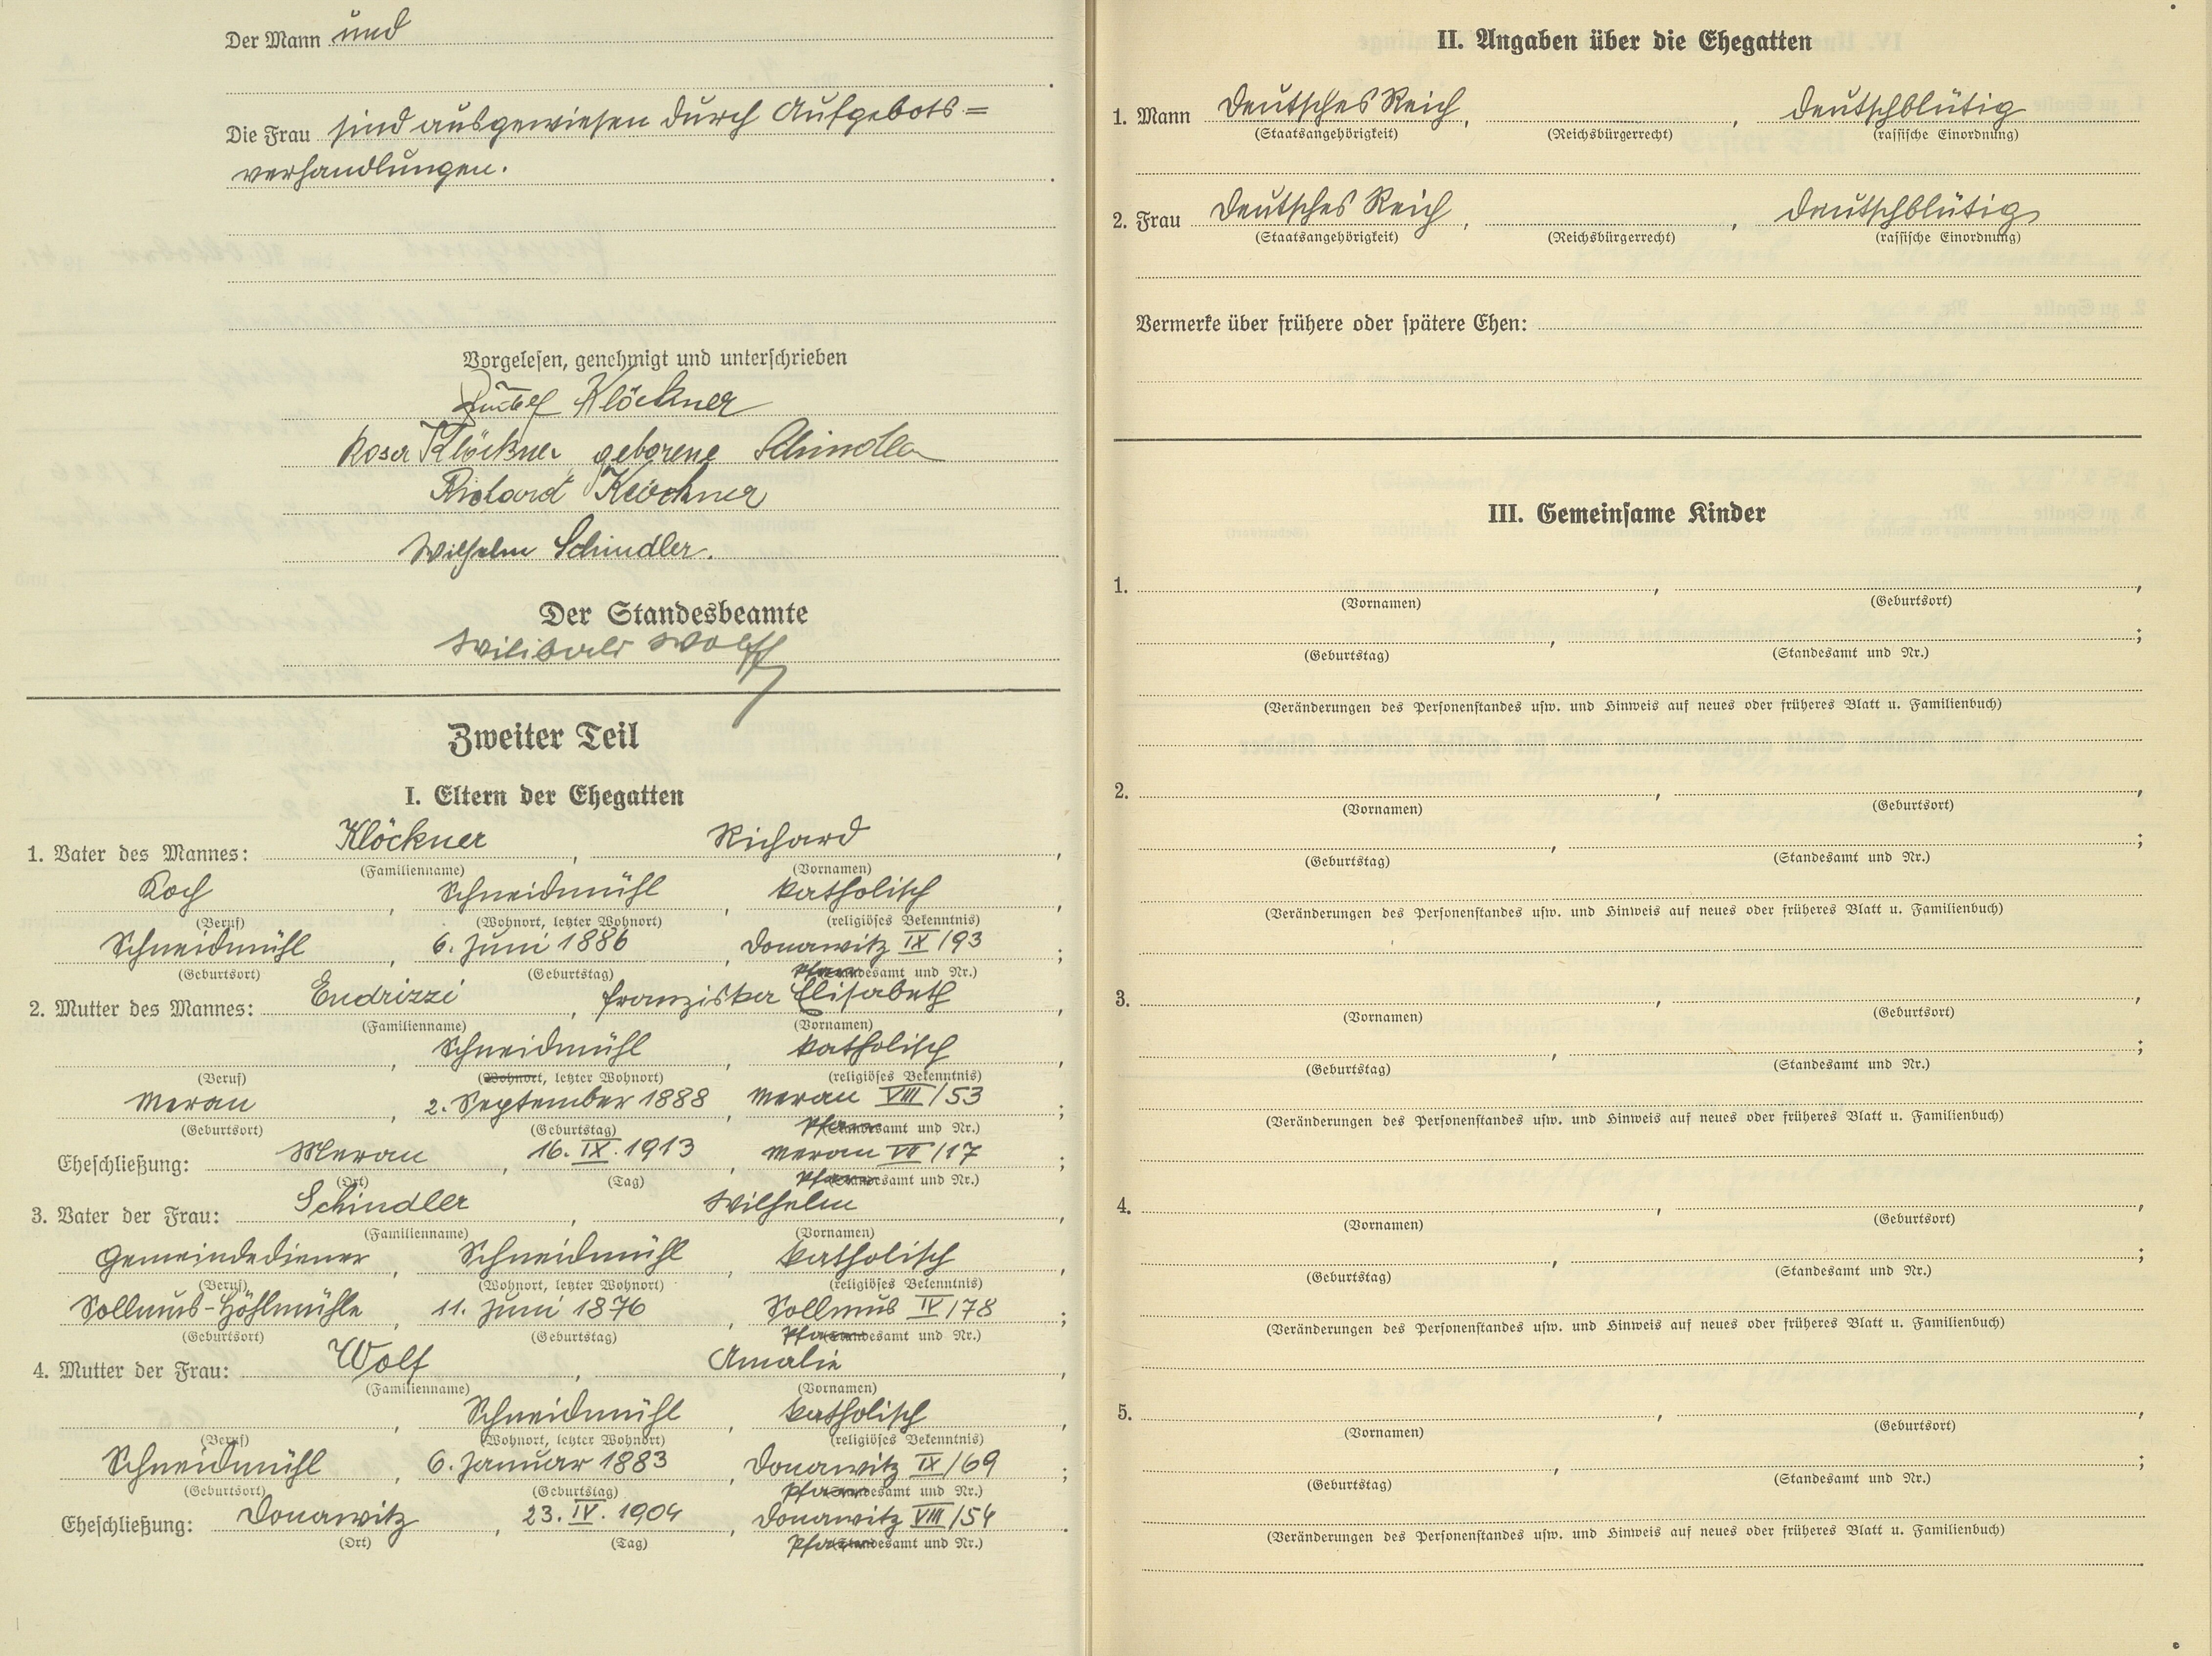 Der Mann und
Die Frau sind ausgewiesen durch Aufgebots=
verhandlungen.
Vorgelesen, genehmigt und unterschrieben
Rudolf Klöckner
Rosa Klöckner geborene Schindler
Richard Klöckner
Wilhelm Schindler.
Der Standesbeamte
Wilibald Wolf
Zweiter Teil
I. Eltern der Ehegatten
1. Vater des Mannes: Klöckner, Richard,
(Familienname) (Vornamen)
Koch, Schneidmühl, katholisch,
(Beruf) (Wohnort, letzter Wohnort) (religiöses Bekenntnis)
Schneidmühl, 6. Juni 1886, Donawitz IX/93;
(Geburtsort) (Geburtstag) Pfarramt und Nr.)
2. Mutter des Mannes: Endrizzi, Franziska Elisabeth,
(Familienname) (Vornamen)
Schneidmühl, katholisch,
(Beruf) (Wohnort, letzter Wohnort) (religiöses Bekenntnis)
Meran, 2. September 1888, Meran VIII/53;
(Geburtsort) (Geburtstag) Pfarramt und Nr.)
Eheschließung: Meran, 16. IX. 1913, Meran VII/17;
(Ort) (Tag) Pfarramt und Nr.)
3. Vater der Frau: Schindler, Wilhelm,
(Familienname) (Vornamen)
Gemeindediener, Schneidmühl, katholisch,
(Beruf) (Wohnort, letzter Wohnort) (religiöses Bekenntnis)
Sollmus-Höhlmühle, 11. Juni 1876, Sollmus IV/78;
(Geburtsort) (Geburtstag) Pfarramt und Nr.)
4. Mutter der Frau: Wolf, Amalie,
(Familienname) (Vornamen)
Schneidmühl, katholisch,
(Beruf) (Wohnort, letzter Wohnort) (religiöses Bekenntnis)
Schneidmühl, 6. Januar 1883, Donawitz IX/69;
(Geburtsort) (Geburtstag) Pfarramt und Nr.)
Eheschließung: Donawitz, 23. IV. 1904, Donawitz VIII/54.
(Ort) (Tag) Pfarramt und Nr.)
II. Angaben über die Ehegatten
1. Mann Deutsches Reich, , deutschblütig
(Staatsangehörigkeit) (Reichsbürgerrecht) (rassische Einordnung)
2. Frau Deutsches Reich, , deutschblütig
(Staatsangehörigkeit) (Reichsbürgerrecht) (rassische Einordnung)
Vermerke über frühere oder spätere Ehen:
III. Gemeinsame Kinder
1. , ,
(Vornamen) (Geburtsort)
, ;
(Geburtstag) (Standesamt und Nr.)
(Veränderungen des Personenstandes usw. und Hinweis auf neues oder früheres Blatt u. Familienbuch)
2. , ,
(Vornamen) (Geburtsort)
, ;
(Geburtstag) (Standesamt und Nr.)
(Veränderungen des Personenstandes usw. und Hinweis auf neues oder früheres Blatt u. Familienbuch)
3. , ,
(Vornamen) (Geburtsort)
, ;
(Geburtstag) (Standesamt und Nr.)
(Veränderungen des Personenstandes usw. und Hinweis auf neues oder früheres Blatt u. Familienbuch)
4. , ,
(Vornamen) (Geburtsort)
, ;
(Geburtstag) (Standesamt und Nr.)
(Veränderungen des Personenstandes usw. und Hinweis auf neues oder früheres Blatt u. Familienbuch)
5. , ,
(Vornamen) (Geburtsort)
, ;
(Geburtstag) (Standesamt und Nr.)
(Veränderungen des Personenstandes usw. und Hinweis auf neues oder früheres Blatt u. Familienbuch)